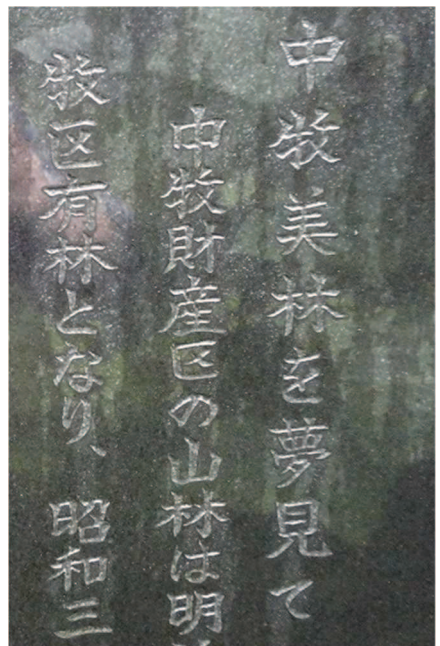 中牧美林を夢見て
中牧財産区の山林は明
牧区有林となり、昭和三